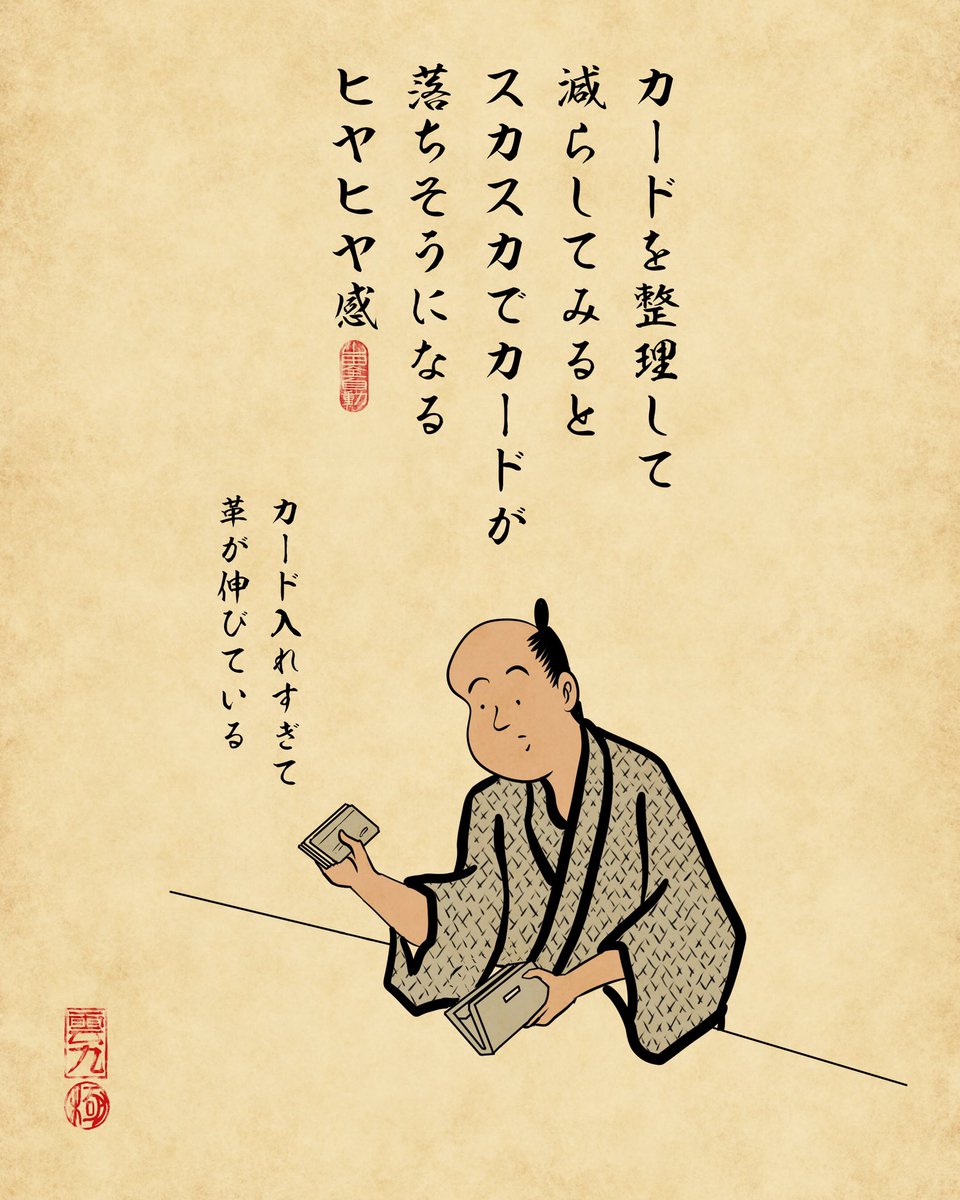 カードを整理して
減らしてみると
スカスカでカードが
落ちそうになる
ヒヤヒヤ感
カード入れすぎて
革が伸びている